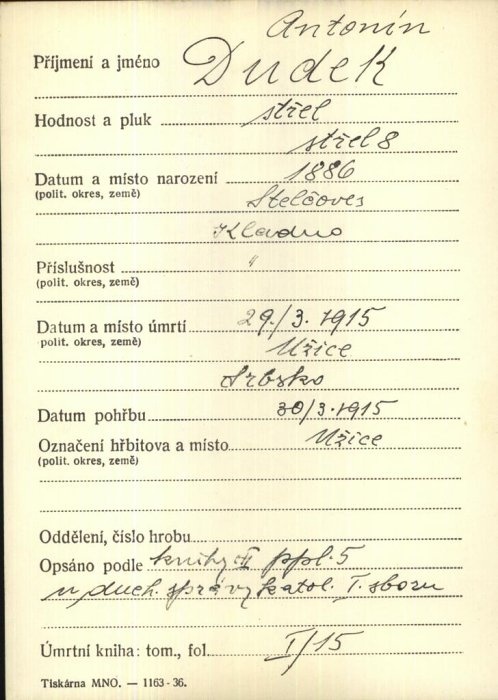 Antonín
Příjmení a jméno Dudek
Hodnost a pluk střel
střel 8
Datum a místo narození 1886
(polit. okres, země) Stelčoves
Kladno
Příslušnost "
(polit. okres, země)
Datum a místo úmrtí 29./3. 1915
(polit. okres, země) Užice
Srbsko
Datum pohřbu 30/3 1915
Označení hřbitova a místo Užice
(polit. okres, země)
Oddělení, číslo hrobu
Opsáno podle knihy II ppl. 5
u duch. správy katol. I. sboru
Úmrtní kniha: tom., fol. I/15
Tiskárna MNO. — 1163-36.